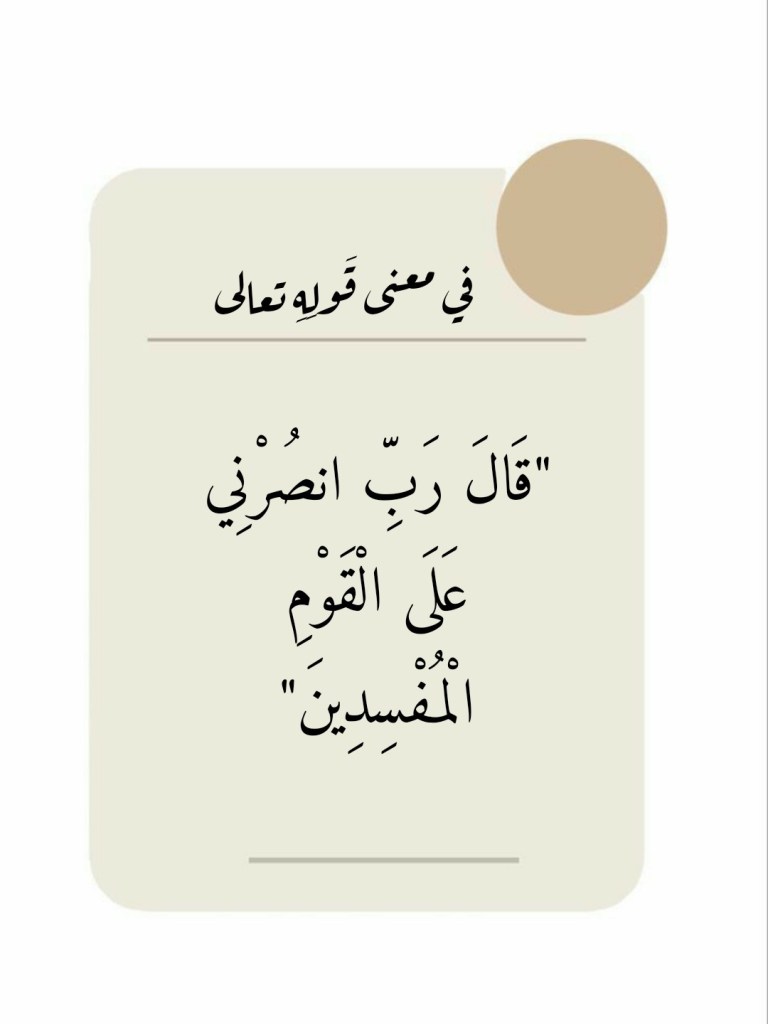 في معنى قَولِهِ تعالى
"قَالَ رَبِّ انصُرْنِي
عَلَى الْقَوْمِ
الْمُفْسِدِينَ"